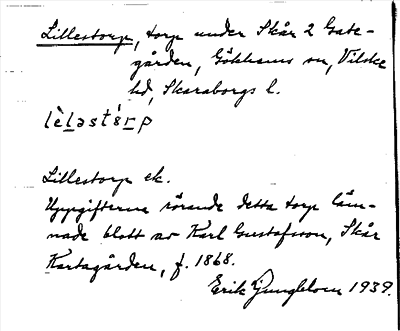 Lillestorp, torp under Skår 2 Gate-
gården, Gökhems sn, Vilske
hd, Skaraborgs l.
lèləstórp
Lillestorp ek.
Uppgifterna rörande detta torp läm-
nade blott av Karl Gustafsson, Skår
Kartagården, f. 1868.
Erik Ljungblom 1939.